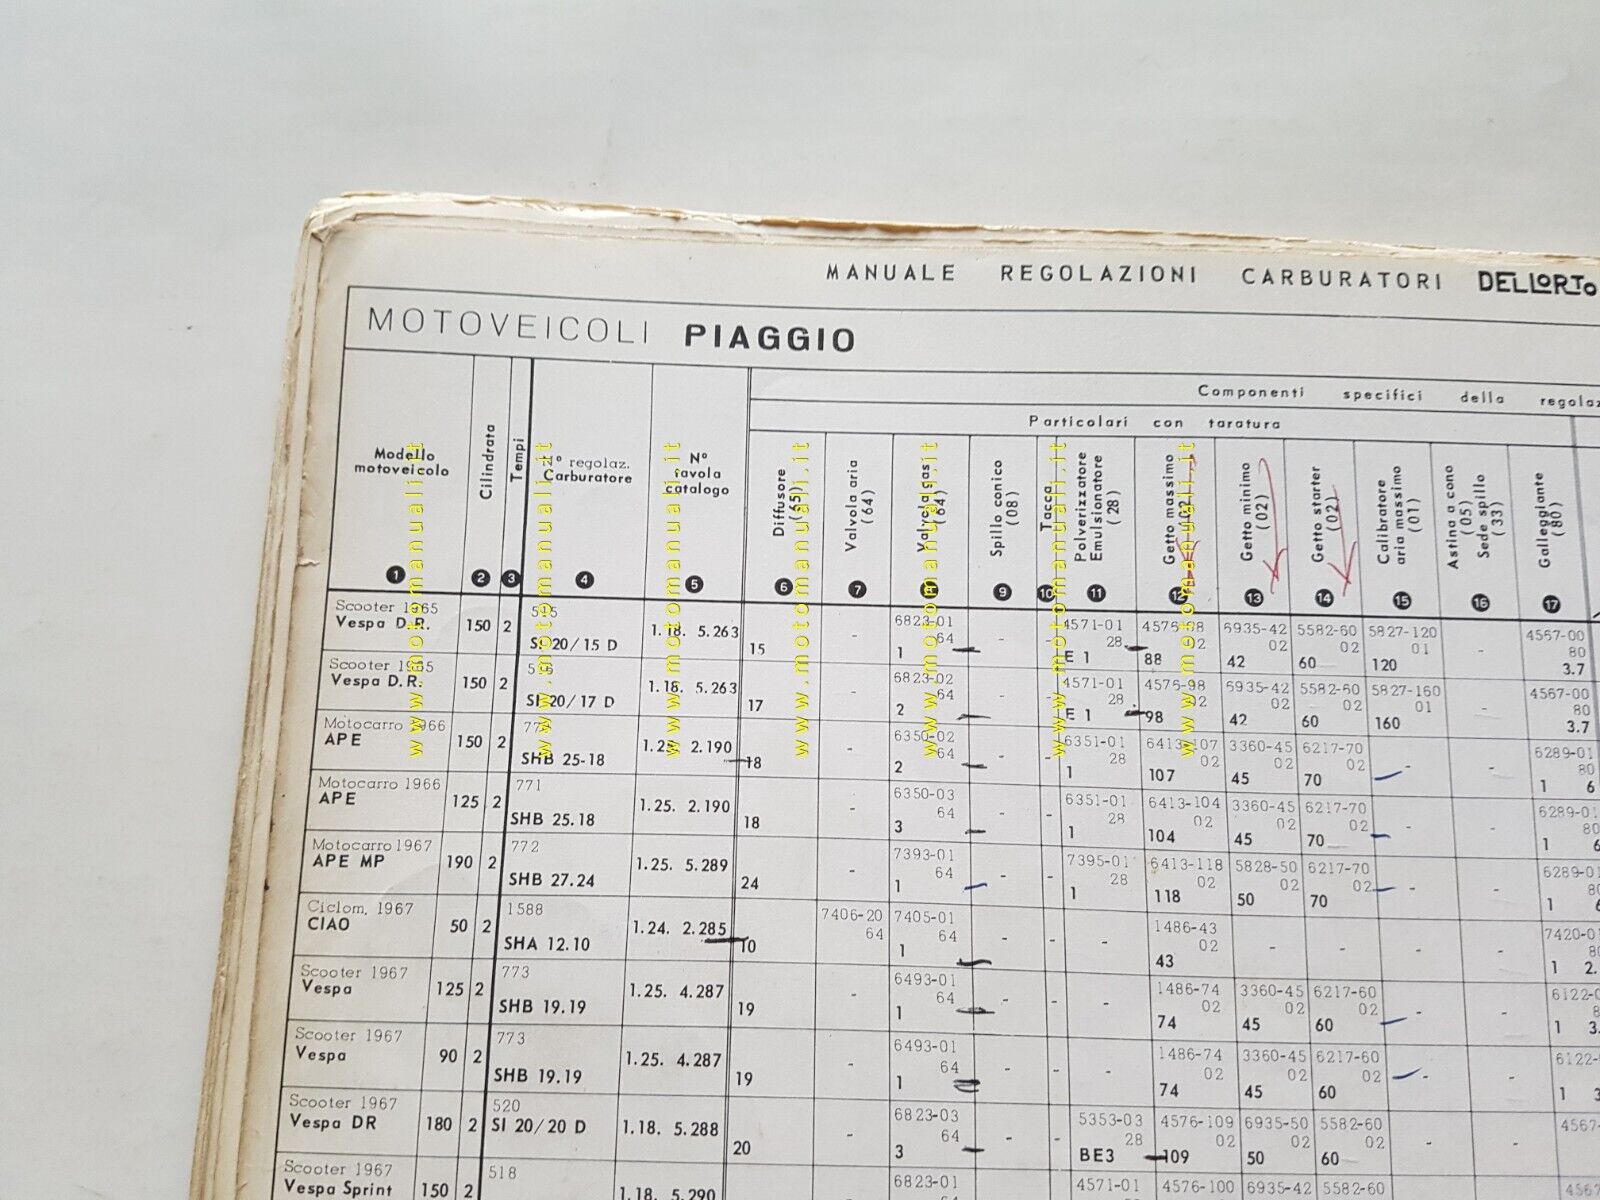 MANUALE REGOLAZIONI CARBURATORI DELLORTO
MOTOVEICOLI PIAGGIO
Componenti specifici della regolaz
Particolari con taratura
Modello motoveicolo
Cilindrata
Tempi
N° regolaz. Carburatore
N° tavola catalogo
Diffusore (65)
Valvola aria (64)
Valvola gas (64)
Spillo conico (08)
Tacca
Polverizzatore Emulsionatore (28)
Getto massimo (02)
Getto minimo (02)
Getto starter (02)
Calibratore aria massimo (01)
Astina a cono (05) Sede spillo (33)
Galleggiante (80)
1 2 3 4 5 6 7 9 10 11 12 13 14 15 16 17
Scooter 1965 6823-01 4571-01 4576-98 6935-42 5582-60 5827-120 4567-00
Vespa D.R. 150 2 SI 20/15 D 1.18. 5.263 15 - 1 64 - - E 1 28 88 02 42 02 60 02 120 01 - 3.7 80
Scooter 1965 6823-02 4571-01 4576-98 6935-42 5582-60 5827-160 4567-00
Vespa D.R. 150 2 SI 20/17 D 1.18. 5.263 17 - 2 64 - - E 1 28 98 02 42 02 60 02 160 01 - 3.7 80
Motocarro 1966 6350-02 6351-01 6413-107 3360-45 6217-70 6289-01
APE 150 2 SHB 25-18 1.25. 2.190 18 - 2 64 - - 1 28 107 02 45 02 70 02 - - 1 6 80
Motocarro 1966 771 6350-03 6351-01 6413-104 3360-45 6217-70 6289-01
APE 125 2 SHB 25.18 1.25. 2.190 18 - 3 64 - - 1 28 104 02 45 02 70 02 - - 1 6 80
Motocarro 1967 772 7393-01 7395-01 6413-118 5828-50 6217-70 6289-01
APE MP 190 2 SHB 27.24 1.25. 5.289 24 - 1 64 - - 1 28 118 02 50 02 70 02 - - 1 6 80
Ciclom. 1967 1588 7406-20 7405-01 1486-43 7420-01
CIAO 50 2 SHA 12.10 1.24. 2.285 10 64 1 64 - - - 43 02 - - - - 1 2.
Scooter 1967 773 6493-01 1486-74 3360-45 6217-60 6122-0
Vespa 125 2 SHB 19.19 1.25. 4.287 19 - 1 64 - - - 74 02 45 02 60 02 - - 1 3.
Scooter 1967 773 6493-01 1486-74 3360-45 6217-60 6122-
Vespa 90 2 SHB 19.19 1.25. 4.287 19 - 1 64 - - - 74 02 45 02 60 02 - - 1 3
Scooter 1967 520 6823-03 5353-03 4576-109 6935-50 5582-60 4567-
Vespa DR 180 2 SI 20/20 D 1.18. 5.288 20 - 3 64 - - BE3 28 109 02 50 02 60 02 - -
Scooter 1967 518 6823-01 4571-01 4576-100 6935-42 5582-60 4567
Vespa Sprint 150 2 1.18. 5.290 64
www.motomanuali.it
www.motomanuali.it
www.motomanuali.it
www.motomanuali.it
www.motomanuali.it
www.motomanuali.it
www.motomanuali.it